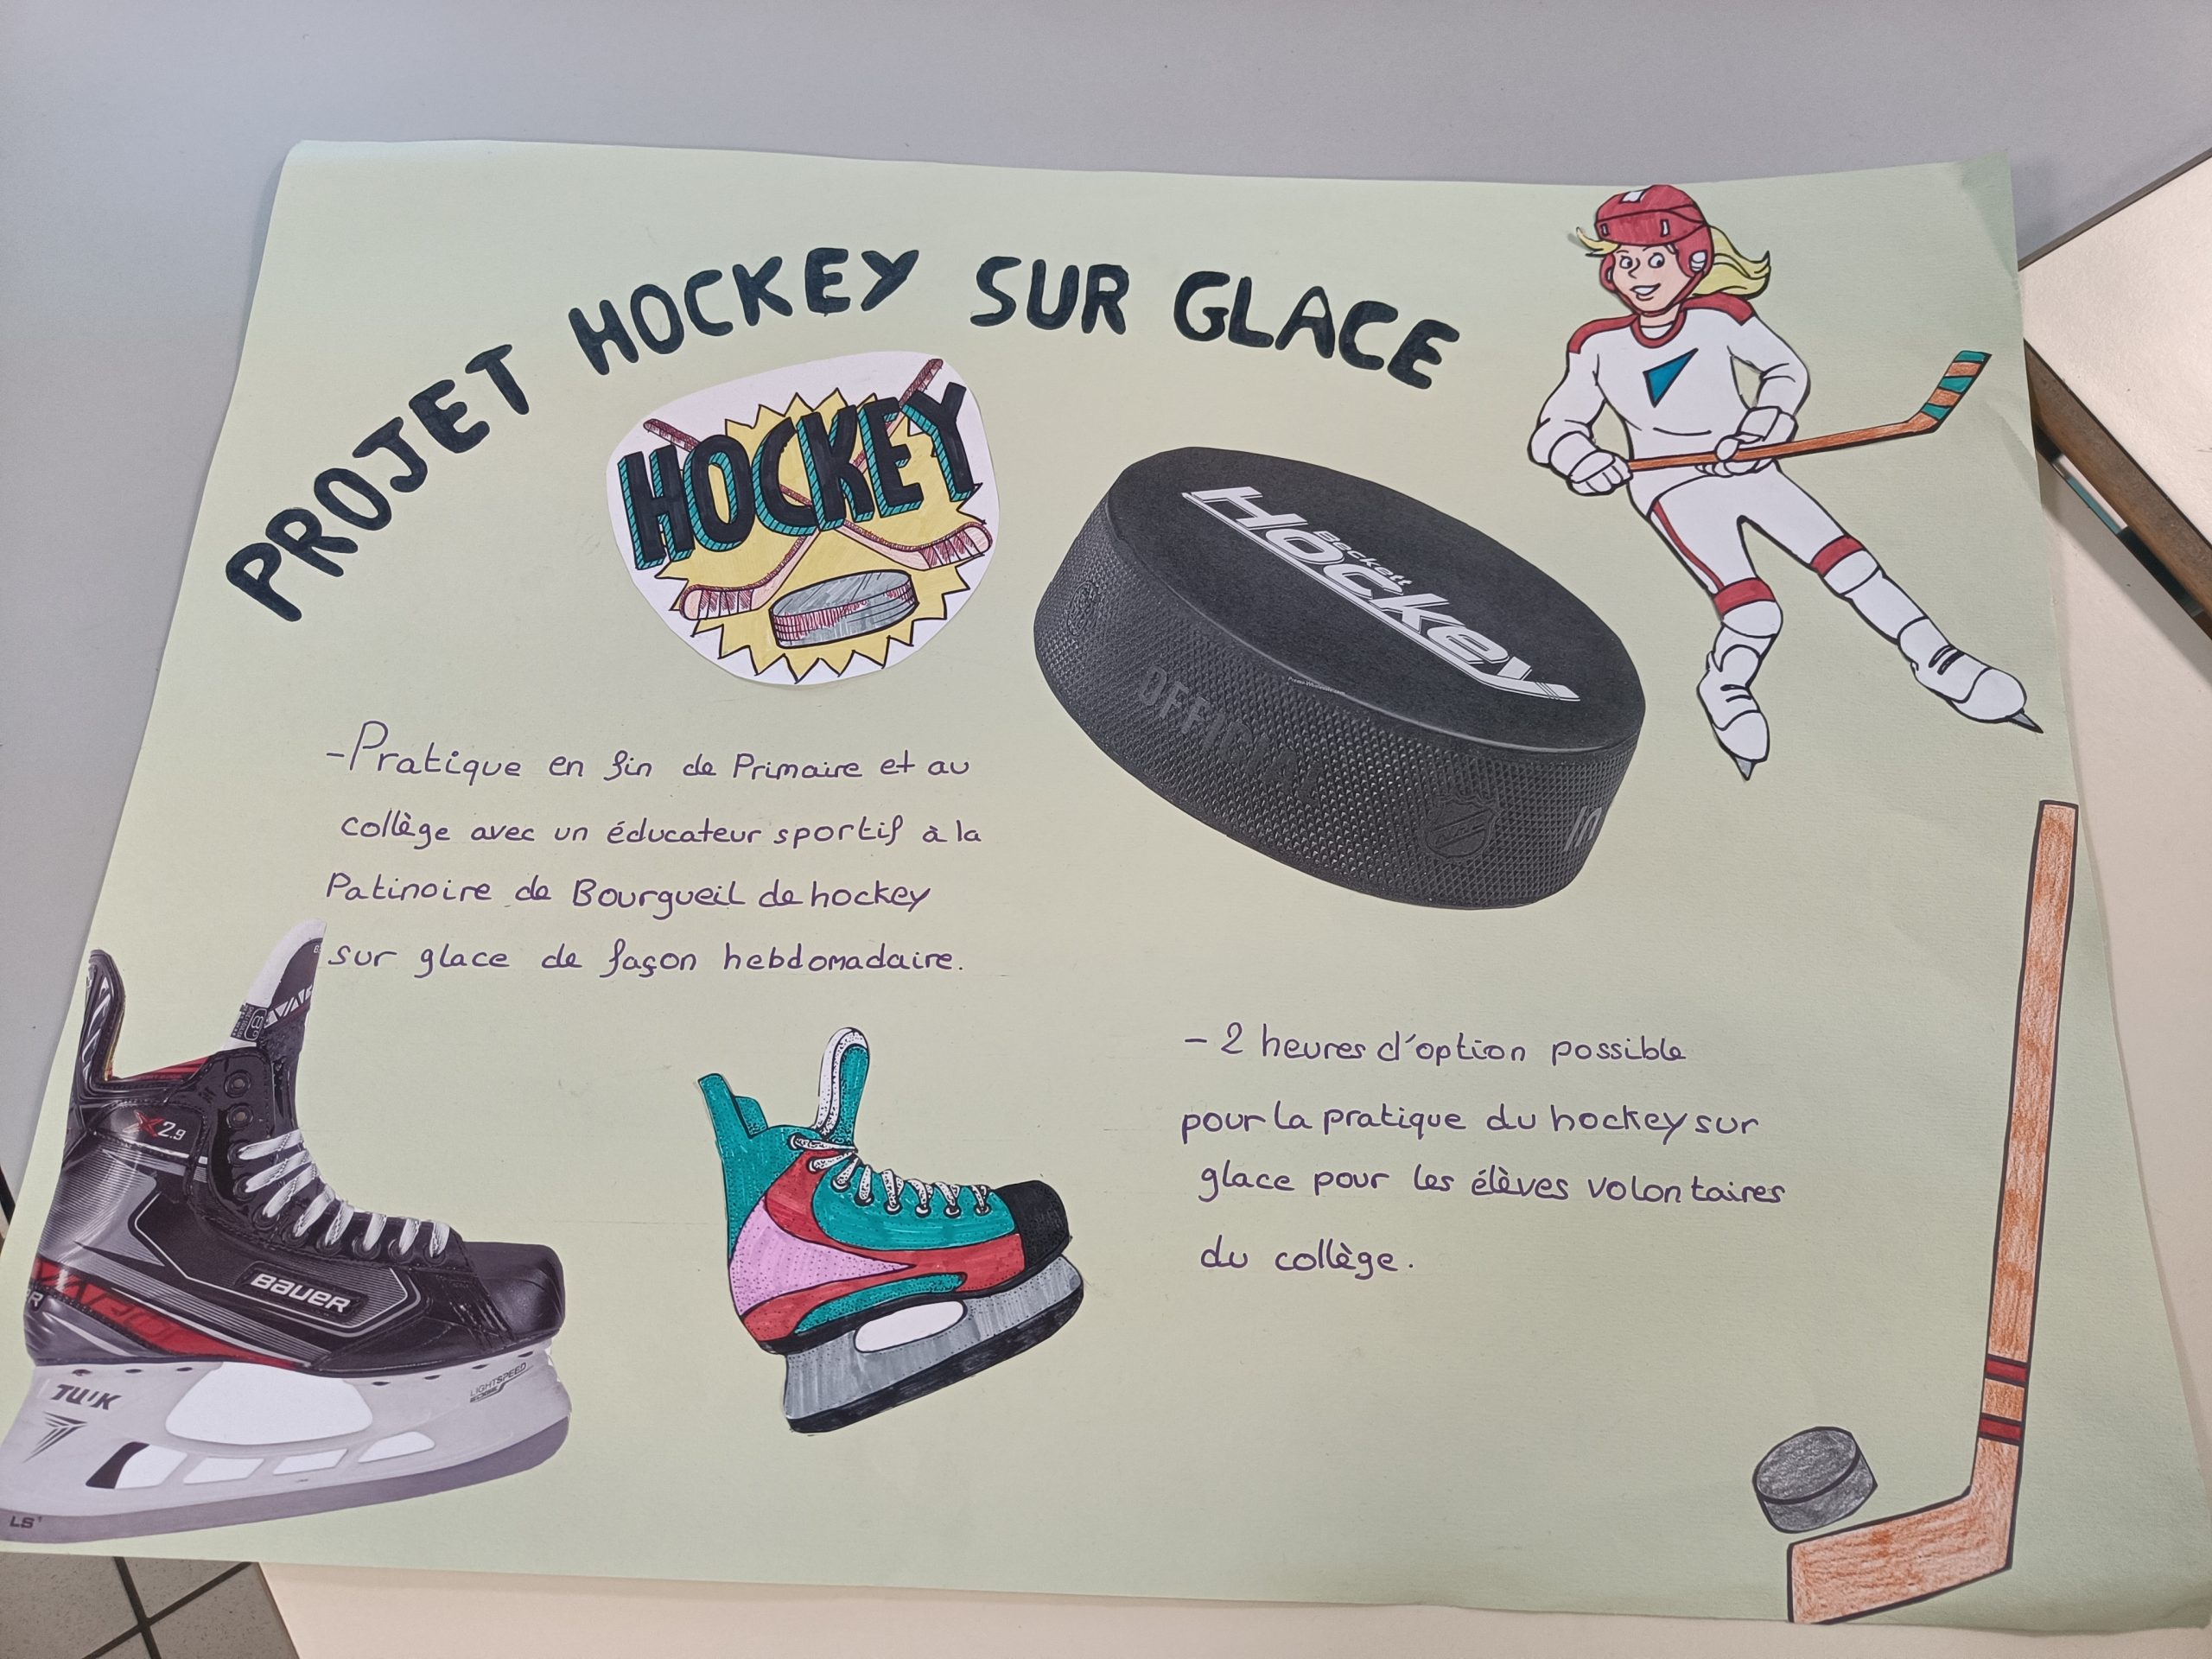 PROJET HOCKEY SUR GLACE
HOCKEY
Beckett
Hockey
OFFICIAL
-Pratique en fin de Primaire et au
collège avec un éducateur sportif à la
Patinoire de Bourgueil de hockey
sur glace de façon hebdomadaire.
X2.9
BAUER
TUUK
LIGHTSPEED
EDGE
LS
- 2 heures d'option possible
pour la pratique du hockey sur
glace pour les élèves volontaires
du collège.